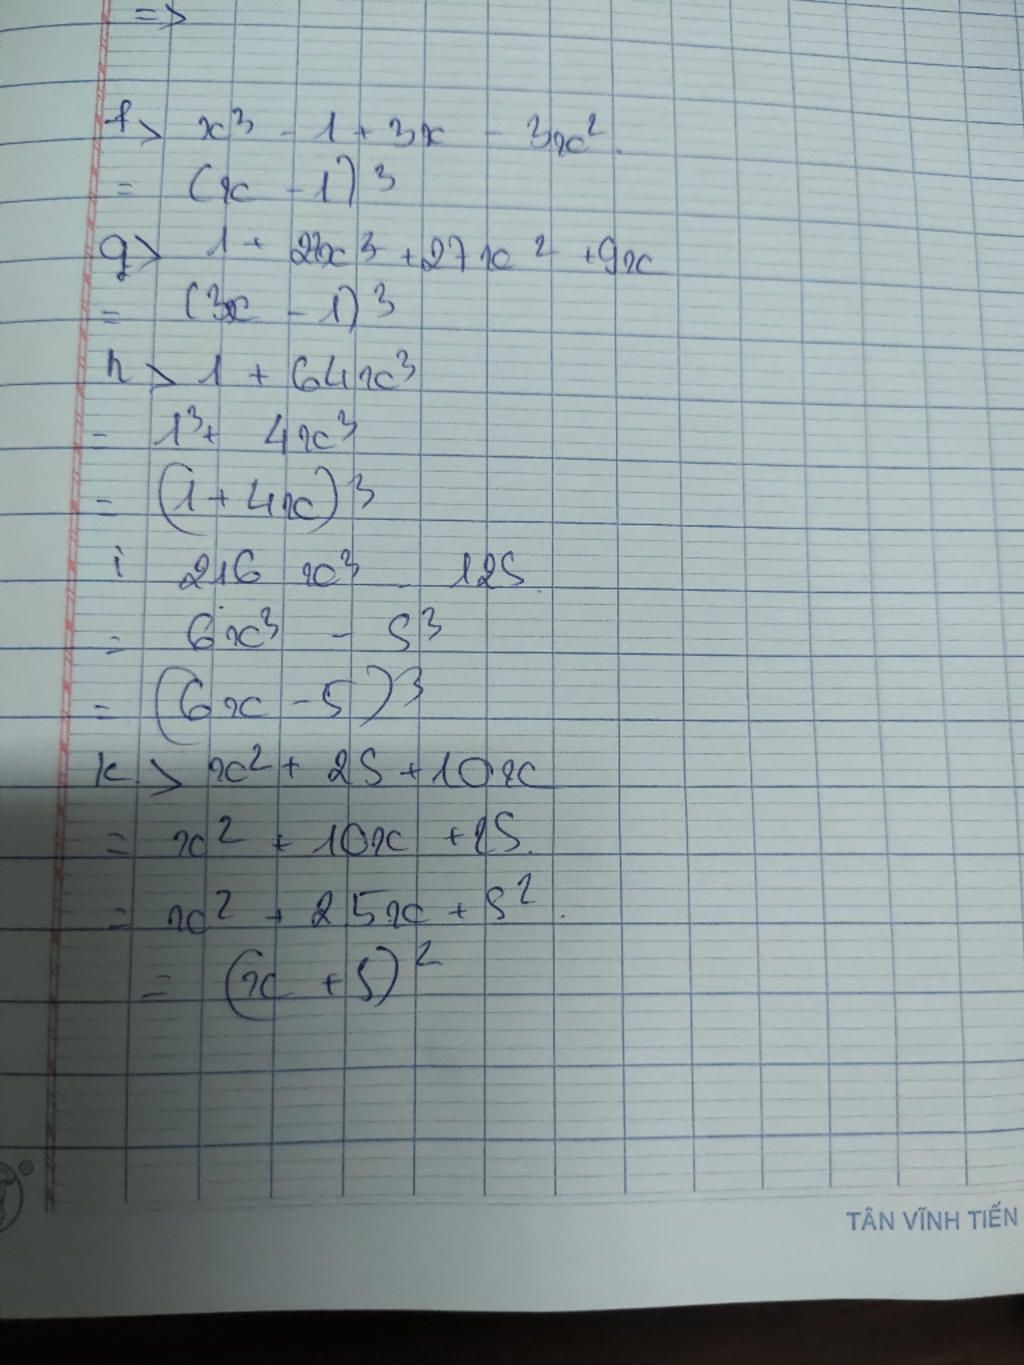 =>
f> x³ - 1 + 3x - 3x².
= (x - 1)³
g> 1 + 27x³ + 27x² + 9x
= (3x - 1)³
h> 1 + 64x³
= 1³ + 4x³
= (1 + 4x)³
i 216x³ - 125
= 6x³ - 5³
= (6x - 5)³
k> x² + 25 + 10x
= x² + 10x + 25.
= x² + 25x + 5².
= (x + 5)²
TÂN VĨNH TIẾN